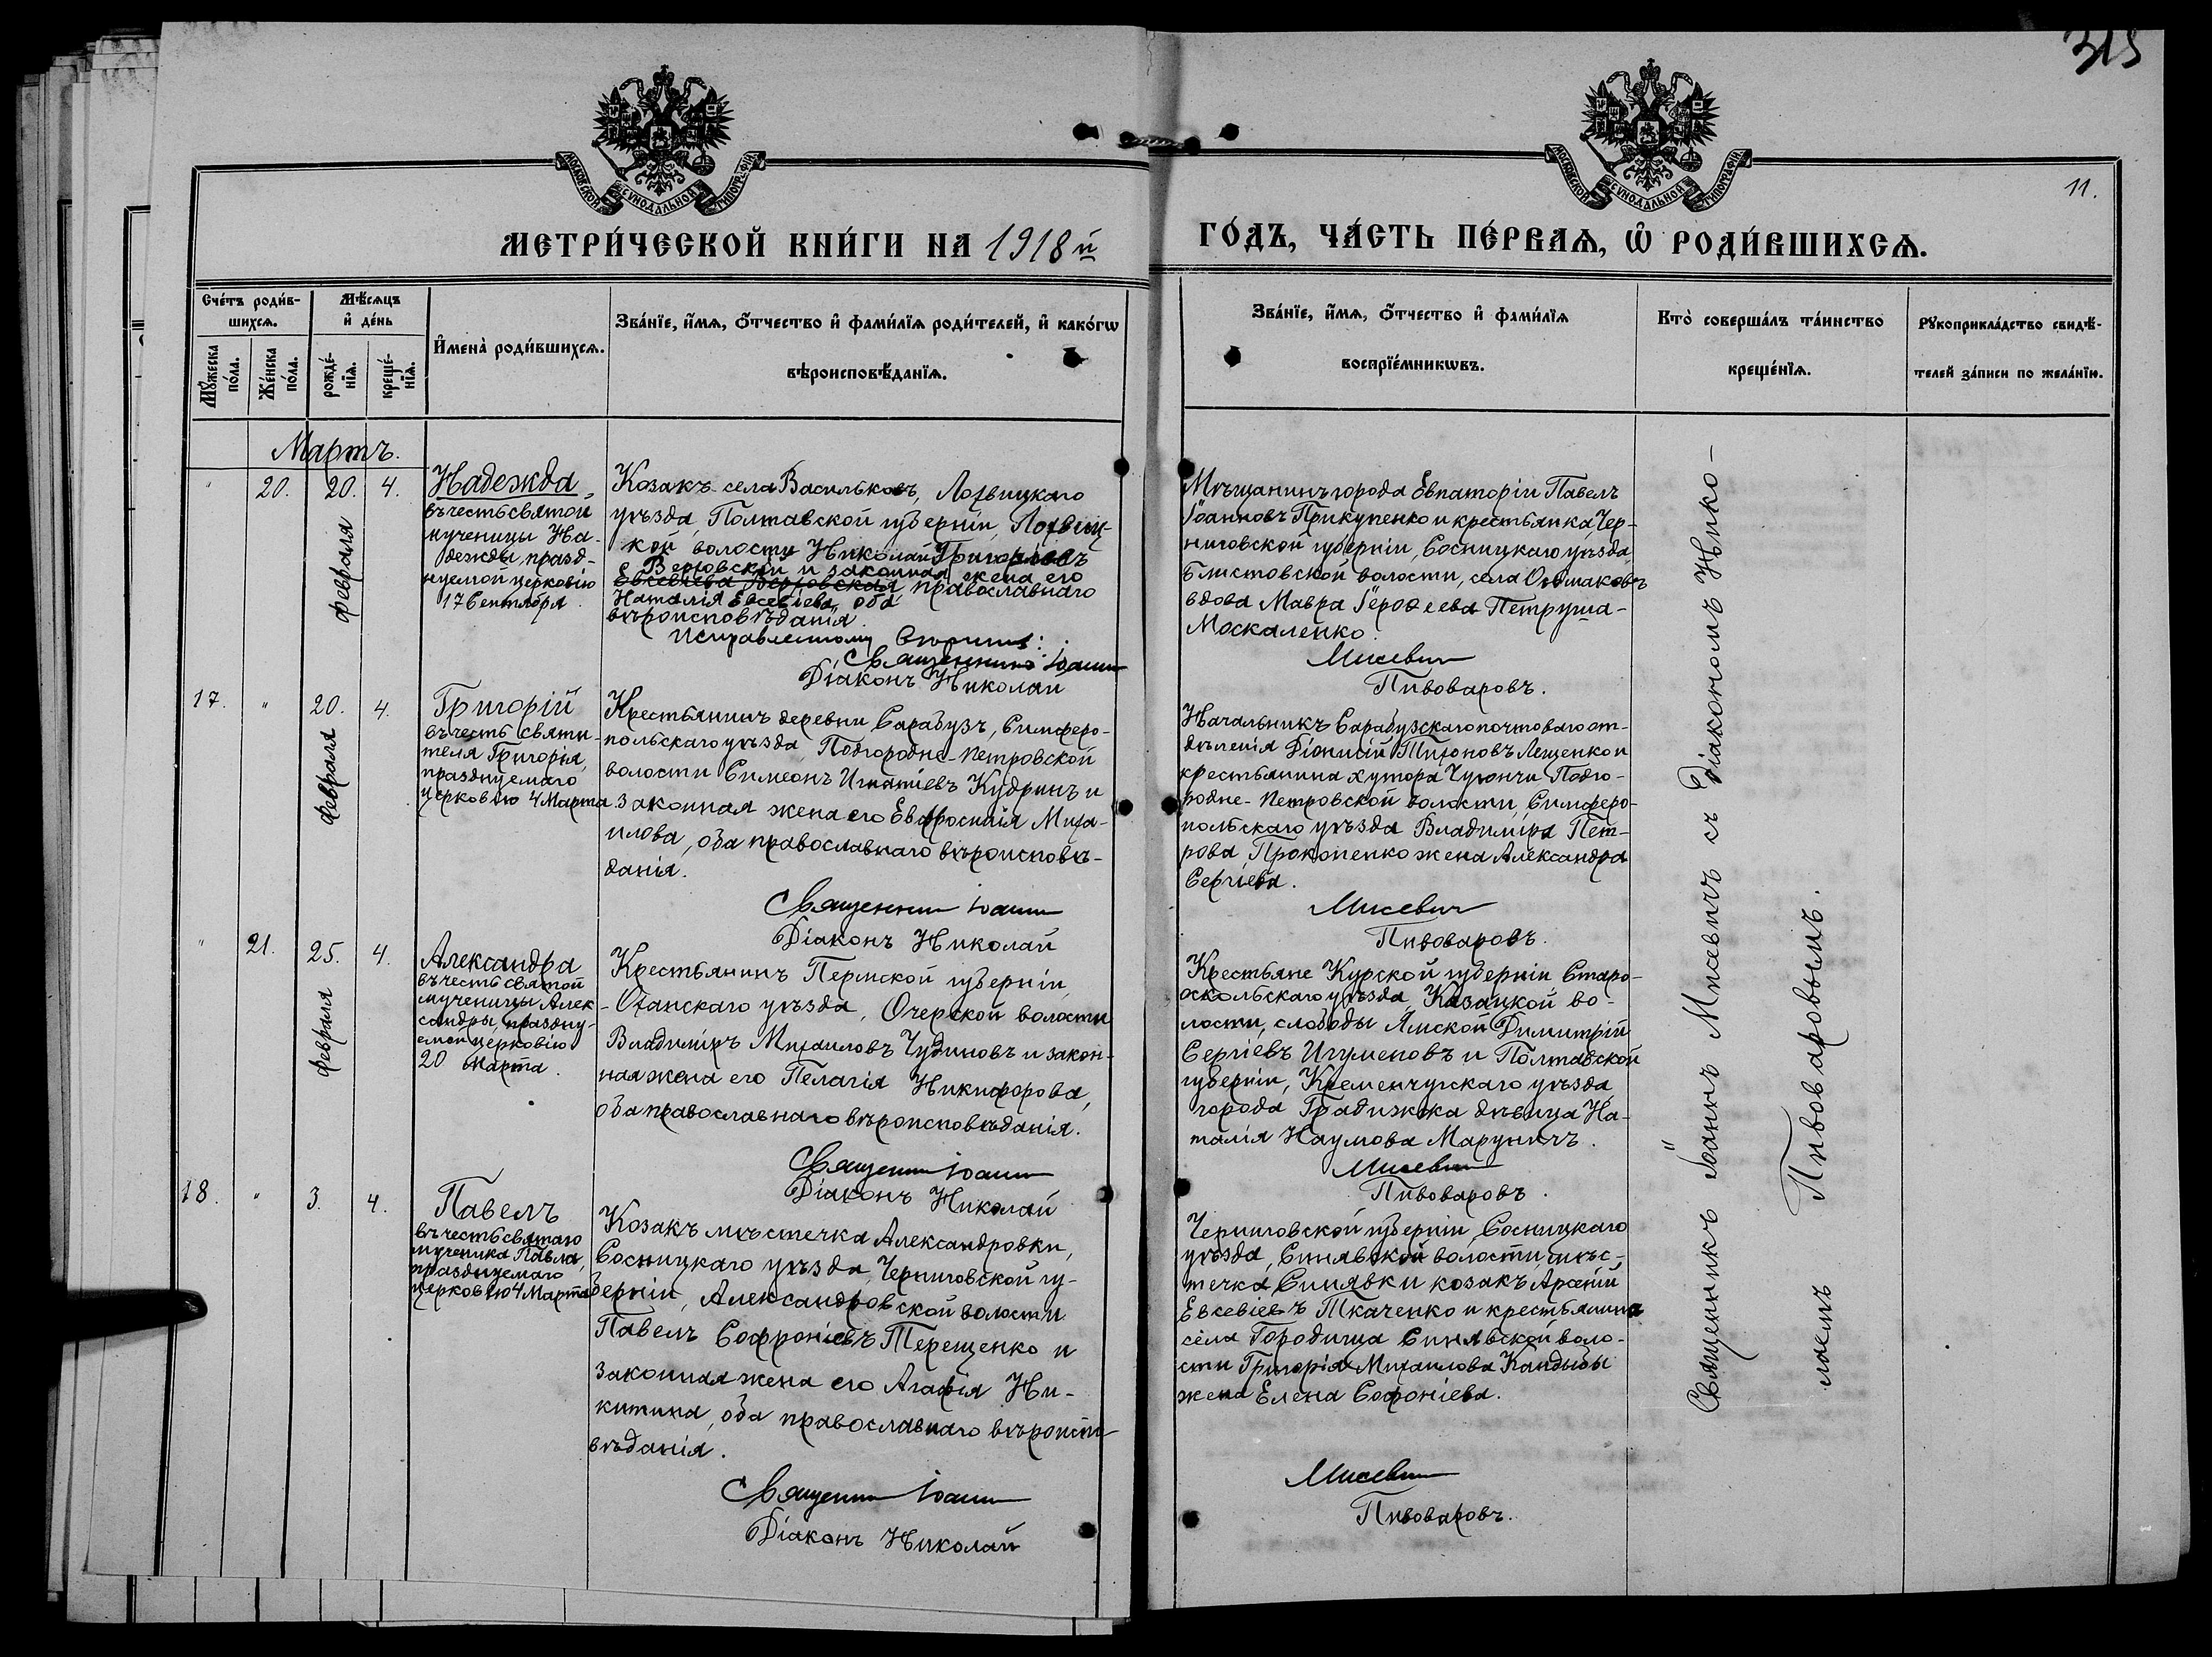 315
11.
МОСКОВСКОЙ СѴНОДАЛЬНОЙ ТИПОГРАФІИ
МОСКОВСКОЙ СѴНОДАЛЬНОЙ ТИПОГРАФІИ
МЕТРИ́ЧЕСКОЙ КНИ́ГИ НА 1918 й
ГО́ДЪ, ЧА́СТЬ ПЕ́РВАѦ, Ѽ РОДИ́ВШИХСѦ.
Сче́тъ роди́в-
шихсѧ.
Мꙋ́жеска
по́ла.
Же́нска
по́ла.
Мѣ́сѧцъ
и҆ де́нь
рожде́-
нїѧ.
креще́-
нїѧ.
И҆мена̀ роди́вшихсѧ.
Зва́нїе, и҆́мѧ, ѻ҆́тчество и҆ фами́лїѧ роди́телей, и҆ како́гѡ
вѣроисповѣ́данїѧ.
Зва́нїе, и҆́мѧ, ѻ҆́тчество и҆ фами́лїѧ
воспрїе́мникѡвъ.
Кто̀ соверша́лъ та́инство
креще́нїѧ.
Рꙋкоприкла́дство свидѣ́-
телей за́писи по жела́нїю.
Мартъ.
" 20. 20. 4.
февраля
Надежда,
въ честь святой
мученицы На-
дежды, празд-
нуемой церковію
17 Сентября.
Козакъ села Васильковъ, Лохвицкаго
уѣзда, Полтавской губерніи, Лохвиц-
кой волости Николай Григоріевъ
Верговскій и законная жена его
Евсевіева Верговская, православнаго
Наталія Евсевіева, оба
вѣроисповѣданія.
Исправленному вѣрить:
Священникъ Іоаннъ
Діаконъ Николай
Мѣщанинъ города Евпаторіи Павелъ
Іоанновъ Прикупенко и крестьянка Чер-
ниговской губерніи, Сосницкаго уѣзда
Блистовской волости, села Ошмаковъ
вдова Мавра Іерофеева Петруша-
Москаленко.
Мисевич
Пивоваровъ.
17. " 20. 4.
февраля
Григорій
въ честь святи-
теля Григорія,
празднуемаго
церковію 4 Марта.
Крестьянинъ деревни Сарабузъ, Симферо-
польскаго уѣзда, Подгородне-Петровской
волости Симеонъ Игнатіевъ Кудринъ и
законная жена его Евфросинія Миха-
илова, оба православнаго вѣроисповѣ-
данія.
Священник Іоанн
Діаконъ Николай
Начальникъ Сарабузскаго почтоваго от-
дѣленія Діонисій Тихоновъ Лещенко и
крестьянина хутора Чуюнчи Подго-
родне-Петровской волости, Симферо-
польскаго уѣзда Владиміра Пет-
рова Прокопенко жена Александра
Сергіева.
Мисевич
Пивоваровъ.
" 21. 25. 4.
февраля
Александра
въ честь святой
мученицы Алек-
сандры, праздну-
емой церковію
20 Марта.
Крестьянинъ Пермской губерніи,
Оханскаго уѣзда, Очерской волости
Владиміръ Михаиловъ Чудиновъ и закон-
ная жена его Пелагія Никифорова,
оба православнаго вѣроисповѣданія.
Священник Іоанн
Діаконъ Николай
Крестьяне Курской губерніи Старо-
оскольскаго уѣзда, Казацкой во-
лости, слободы Ямской Димитрій
Сергіевъ Игуменовъ и Полтавской
губерніи, Кременчугскаго уѣзда,
города Градижска дѣвица На-
талія Наумова Маруничъ.
Мисевич
Пивоваровъ.
18. " 3. 4.
Павелъ
въ честь святаго
мученика Павла,
празднуемаго
церковію 4 Марта
Козакъ мѣстечка Александровки,
Сосницкаго уѣзда, Черниговской гу-
берніи, Александровской волости
Павелъ Софроніевъ Терещенко и
законная жена его Агафія Ни-
китина, оба православнаго вѣроиспо-
вѣданія.
Священник Іоанн
Діаконъ Николай
Черниговской губерніи, Сосницкаго
уѣзда, Синявской волости, мѣс-
течка Синявки козакъ Арсеній
Евсевіевъ Ткаченко и крестьянина
села Городища Синявской воло-
сти Григорія Михаилова Кандыбы
жена Елена Софоніева.
Мисевич
Пивоваровъ.
Священникъ Іоаннъ Мисевичъ съ діакономъ Нико-
лаемъ Пивоваровымъ.